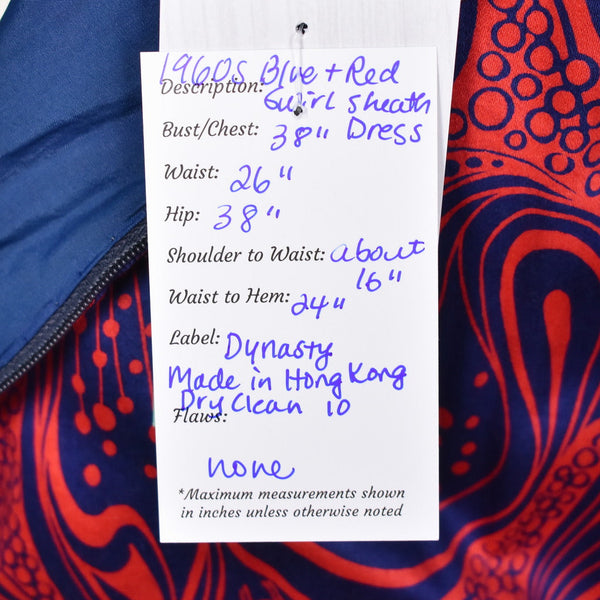 1960s Blue + Red
Description: Swirl Sheath
Bust/Chest: 38" Dress
Waist: 26"
Hip: 38"
Shoulder to Waist: about
16"
Waist to Hem: 24"
Label: Dynasty
Made in Hong Kong
Dry Clean 10
Flaws:
none
*Maximum measurements shown
in inches unless otherwise noted